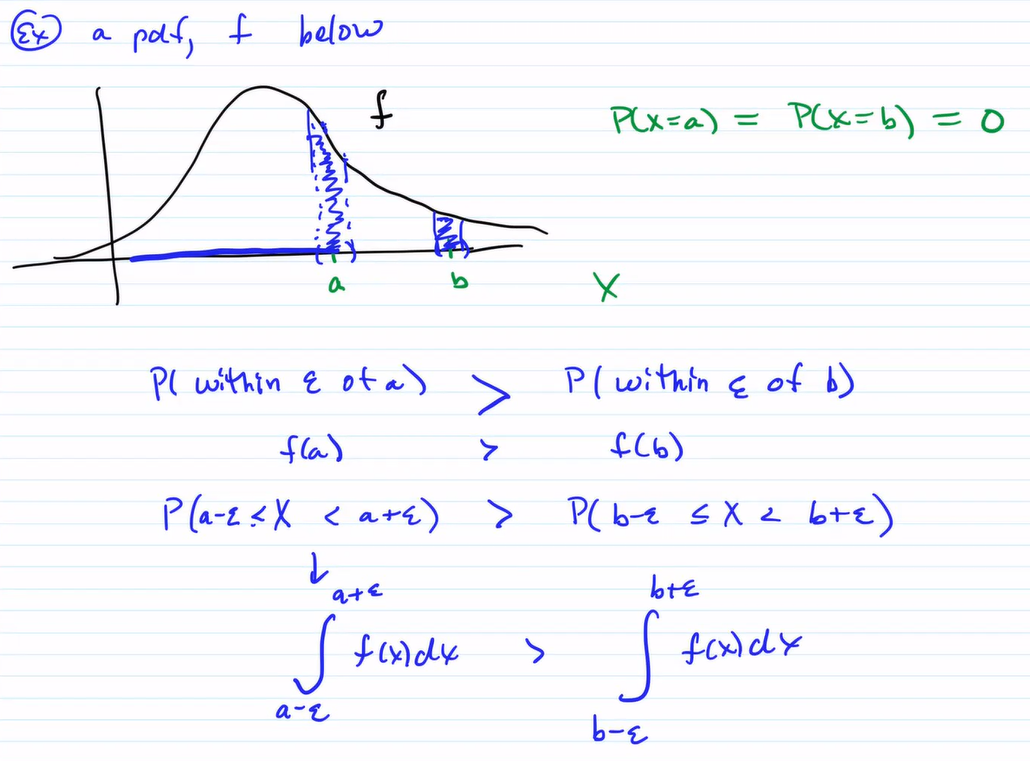 Ex a pdf, f below
f
P(X=a) = P(X=b) = 0
( ) ( )
a b X
P( within ε of a) > P( within ε of b)
f(a) > f(b)
P(a-ε ≤ X < a+ε) > P( b-ε ≤ X < b+ε)
↓
a+ε b+ε
∫ f(x)dx > ∫ f(x)dx
a-ε b-ε